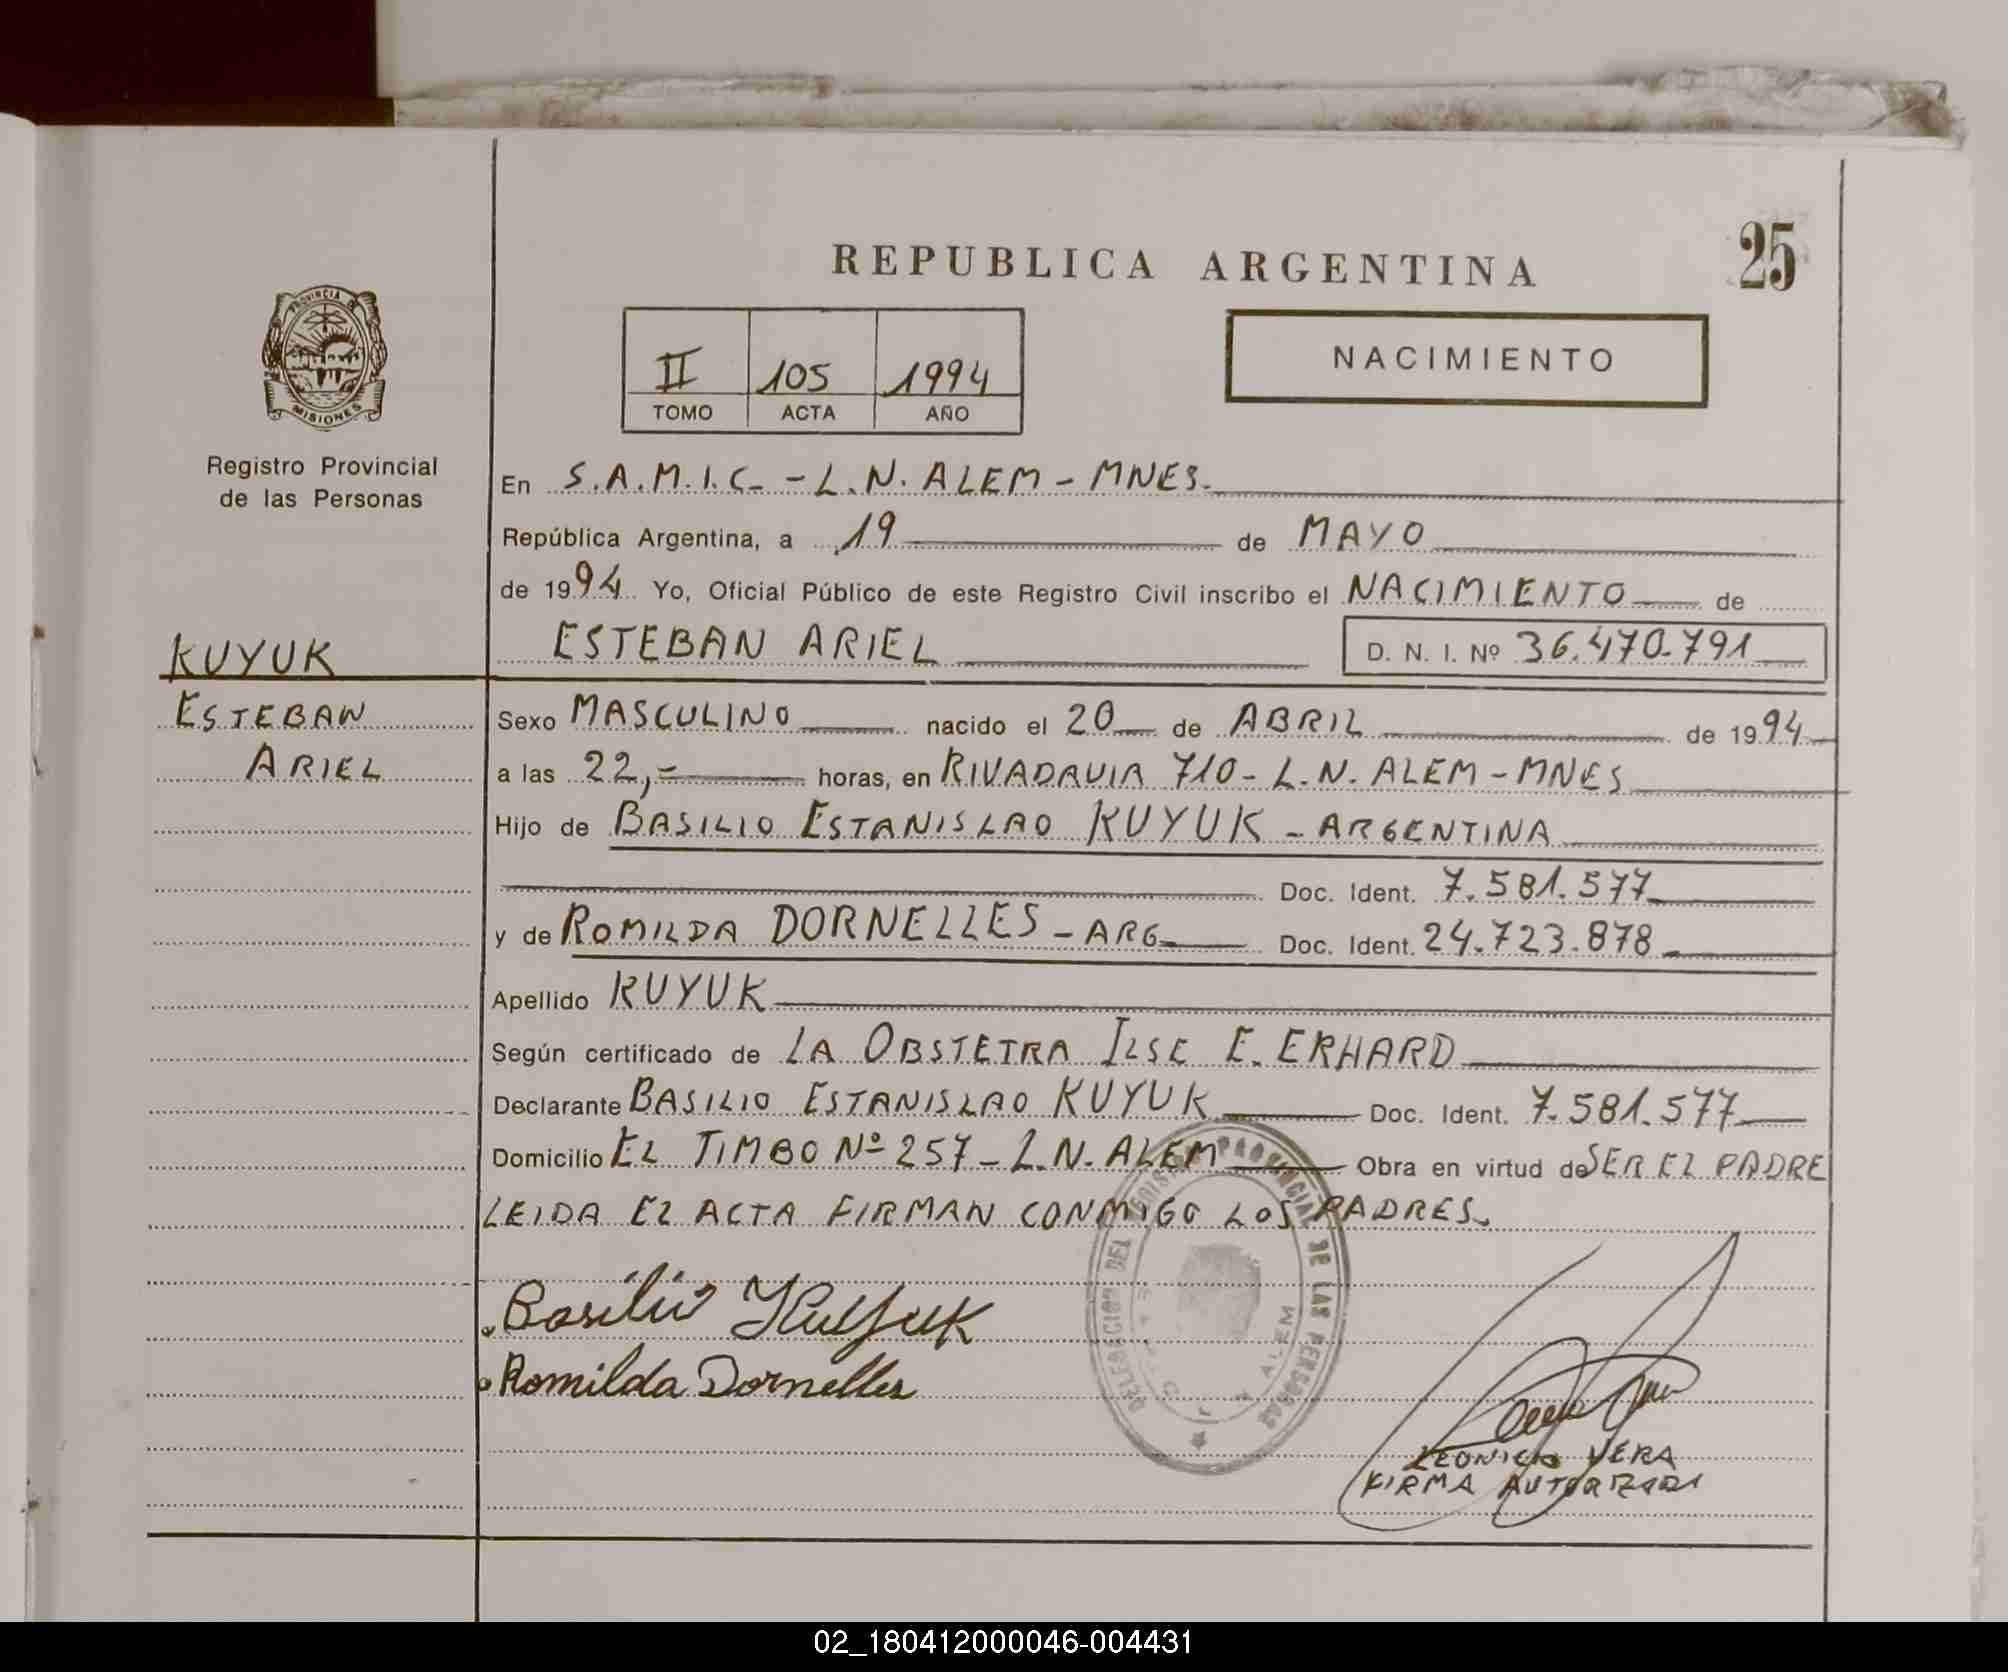 25
REPUBLICA ARGENTINA
PROVINCIA DE
MISIONES
Registro Provincial
de las Personas
II 105 1994
TOMO ACTA AÑO
NACIMIENTO
En S.A.M.I.C. - L.N. ALEM - MNES.
República Argentina, a 19 de MAYO
de 1994 Yo, Oficial Público de este Registro Civil inscribo el NACIMIENTO de
KUYUK
ESTEBAN ARIEL D. N. I. Nº 36.470.791
ESTEBAN
ARIEL
Sexo MASCULINO nacido el 20 de ABRIL de 1994
a las 22,= horas, en RIVADAVIA 710 - L.N. ALEM - MNES
Hijo de BASILIO ESTANISLAO KUYUK - ARGENTINA
Doc. Ident. 7.581.577
y de ROMILDA DORNELLES - ARG Doc. Ident. 24.723.878
Apellido KUYUK
Según certificado de LA OBSTETRA ILSE E. ERHARD
Declarante BASILIO ESTANISLAO KUYUK Doc. Ident. 7.581.577
Domicilio EL TIMBO Nº 257 - L.N. ALEM Obra en virtud de SER EL PADRE
LEIDA EL ACTA FIRMAN CONMIGO LOS PADRES.
DELEGACION DEL REGISTRO PROVINCIAL DE LAS PERSONAS
ALEM
Basilio Kuyuk
Romilda Dornelles
LEONICIO VERA
FIRMA AUTORIZADA
02_180412000046-004431